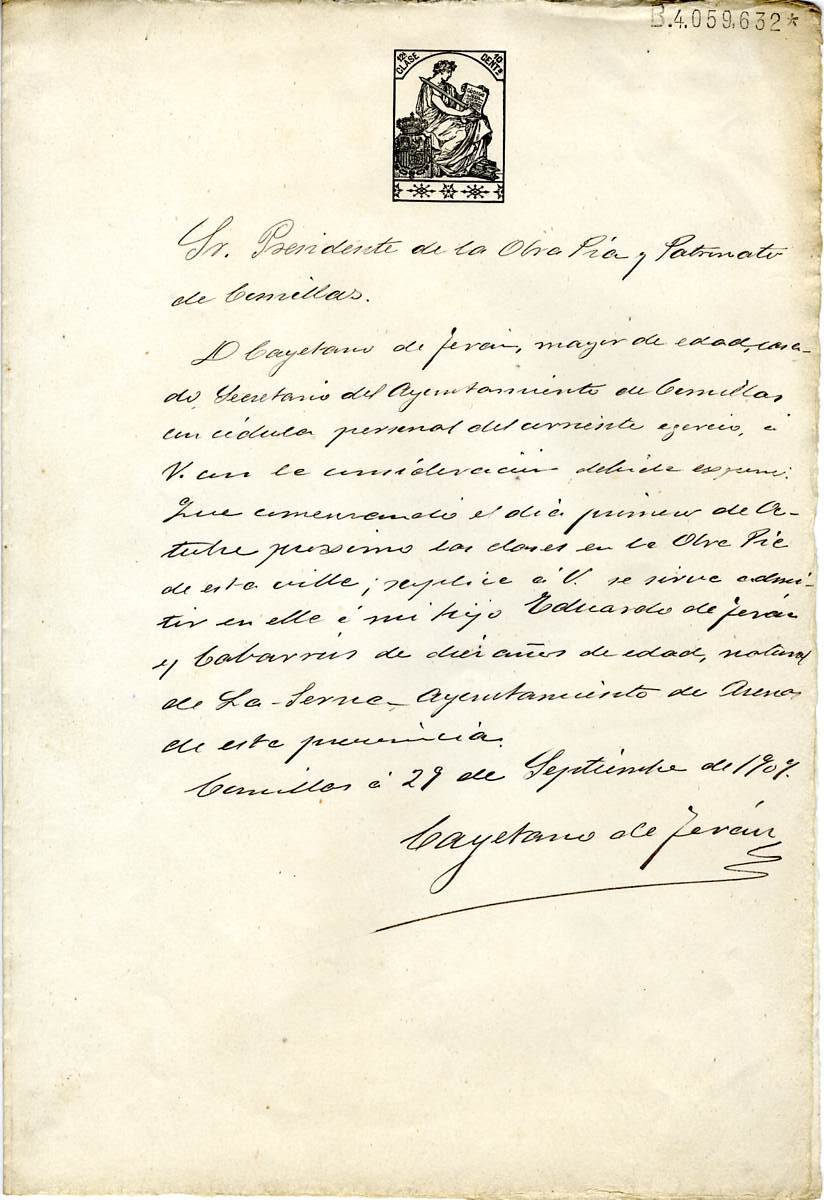 B.4.059.632*
12ª CLASE 10 CENTS
Sr. Presidente de la Obra Pía y Patronato
de Comillas.
D Cayetano de Terán, mayor de edad, casa-
do, Secretario del Ayuntamiento de Comillas
con cédula personal del corriente egercicio, á
V. con la consideración debida expone:
Que comenzando el día primero de Oc-
tubre proximo las clases en la Obra Pía
de esta villa; suplica á V. se sirva admi-
tir en ella á mi hijo Eduardo de Terán
y Cabarrús de diez años de edad, natural
de La-Serna-Ayuntamiento de Arenas
de esta provincia.
Comillas á 29 de Septiembre de 1909.
Cayetano de Terán